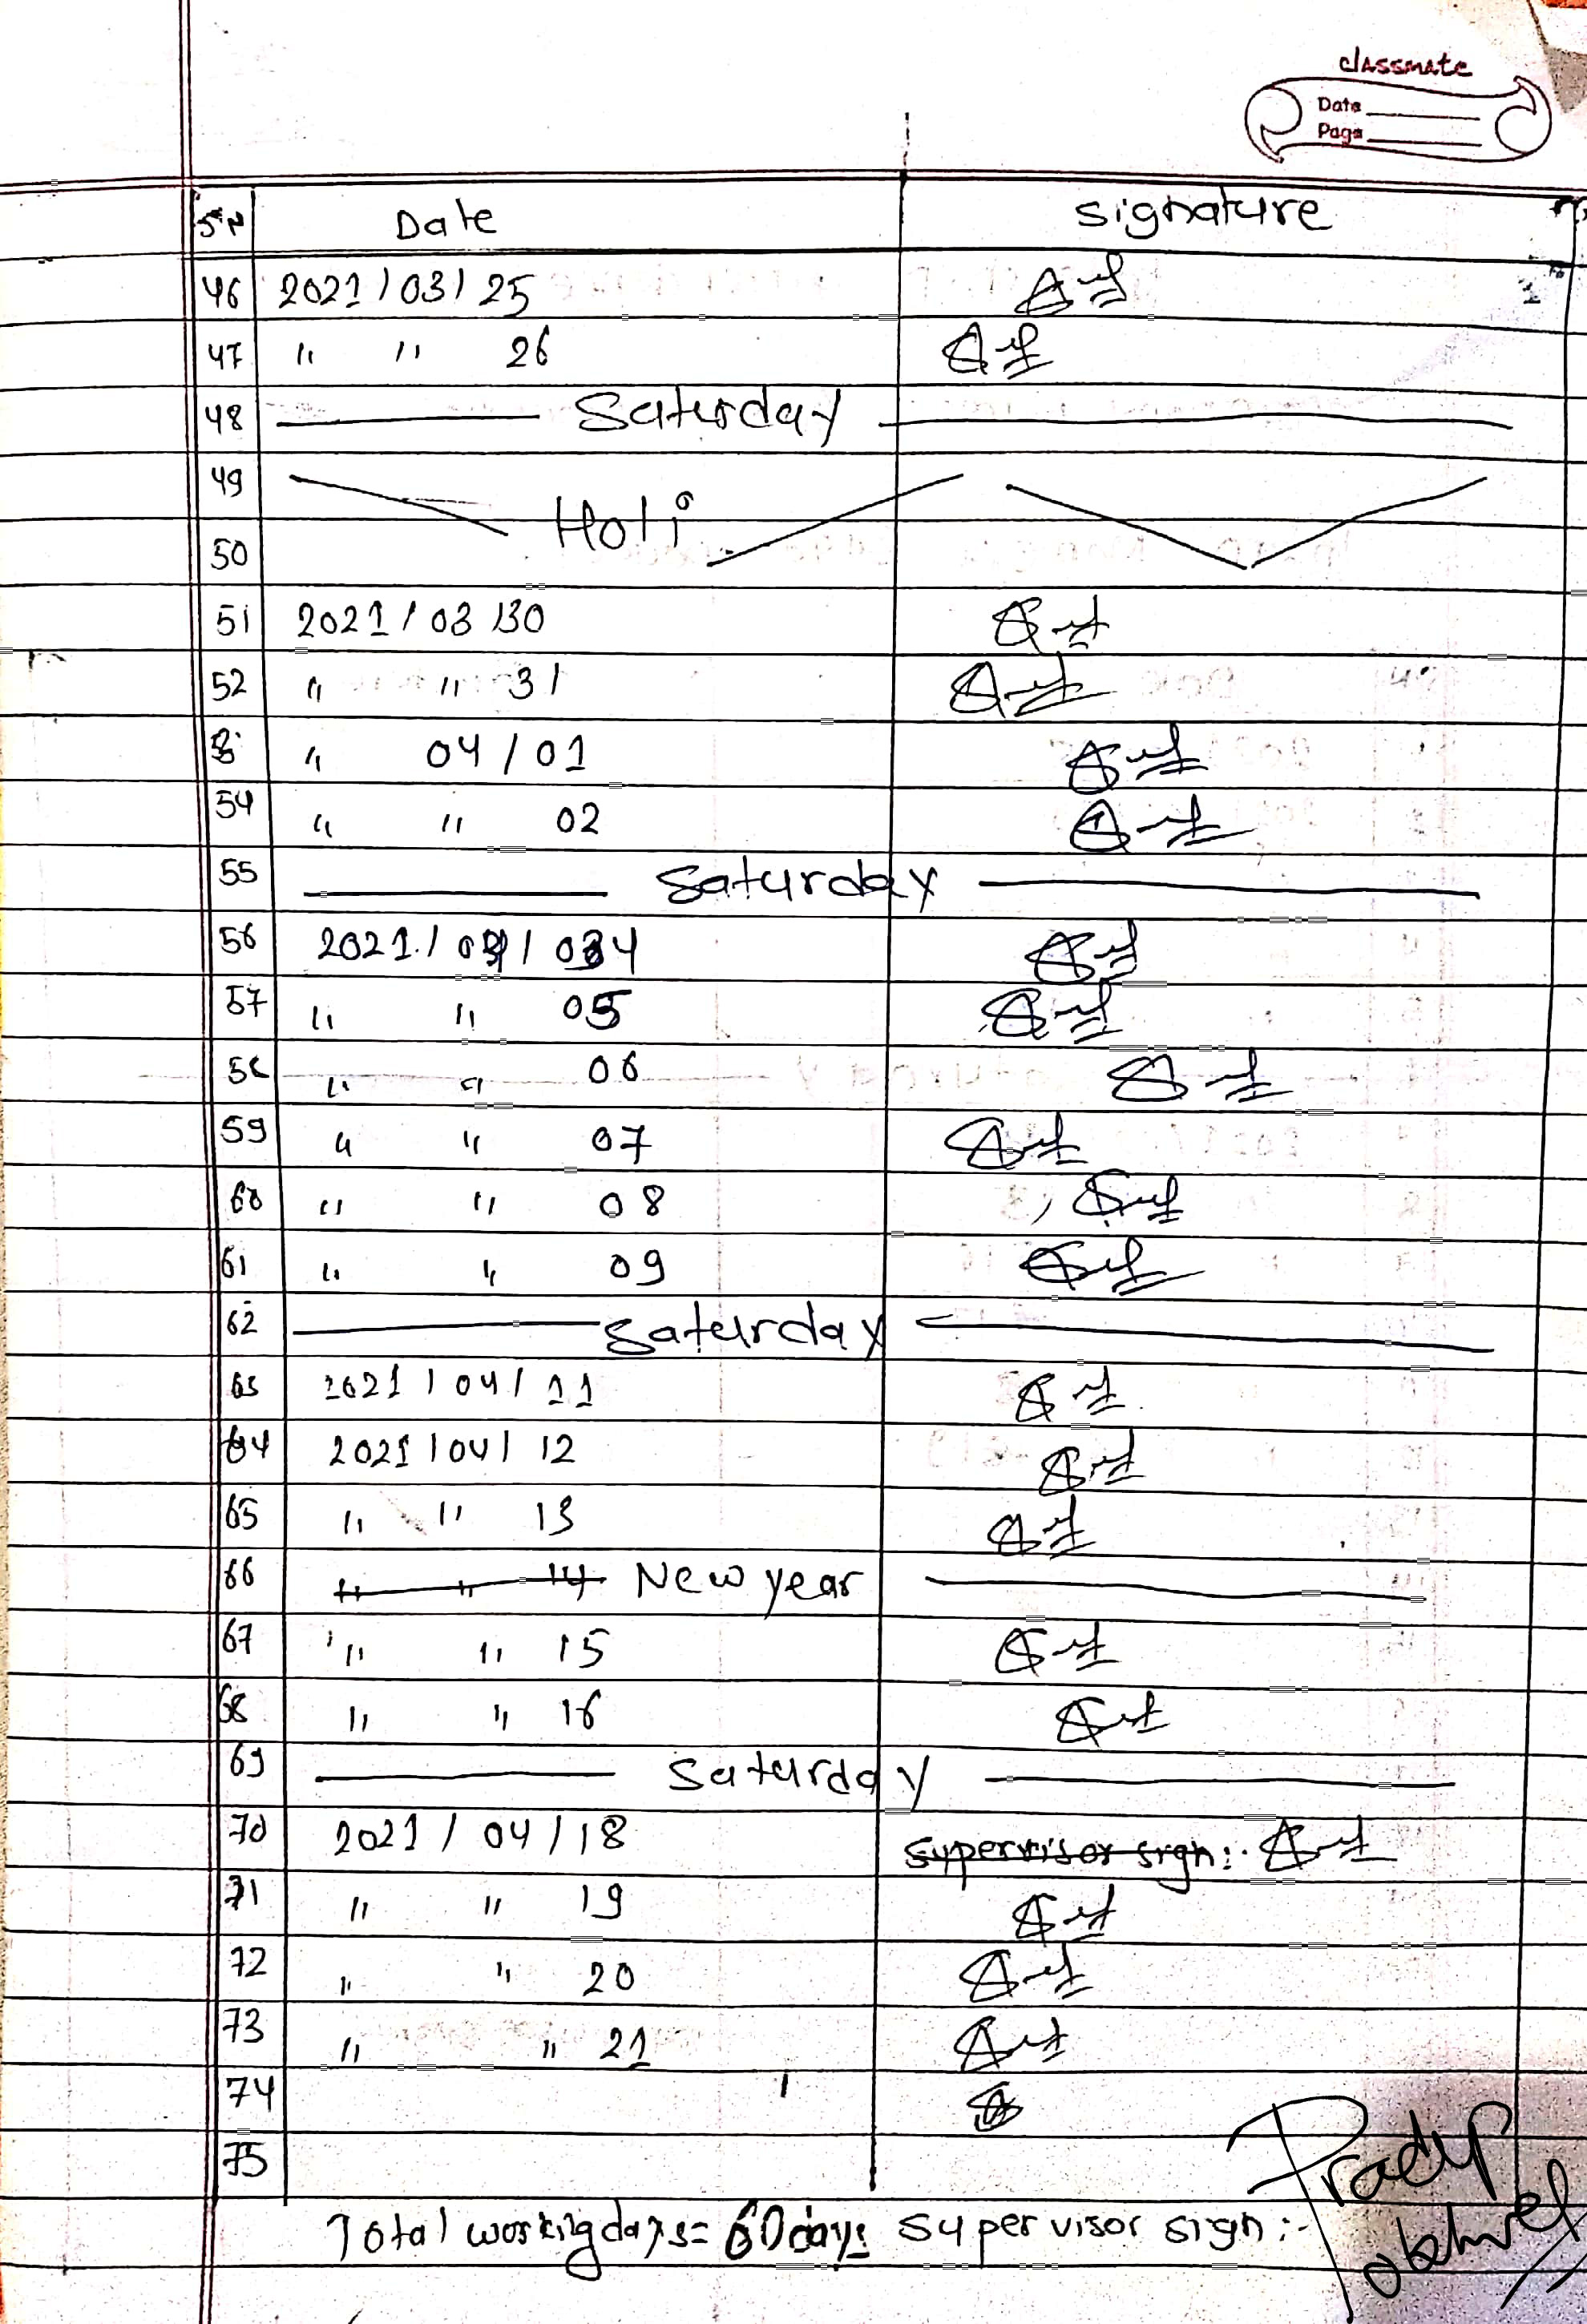 classmate
Date
Page
SN Date Signature
46 2021/03/25
47 " " 26
48 Saturday
49
Holi
50
51 2021/03/30
52 " " 31
" 04/01
54 " " 02
55 Saturday
56 2021/04/04
57 " " 05
58 " " 06
59 " " 07
60 " " 08
61 " " 09
62 Saturday
63 2021/04/11
64 2021/04/12
65 " " 13
66 " " 14 New year
67 " " 15
68 " " 16
69 Saturday
70 2021/04/18 Supervisor sign:
71 " " 19
72 " " 20
73 " " 21
74
75
Total working days = 60 days Supervisor sign :-
Pradip